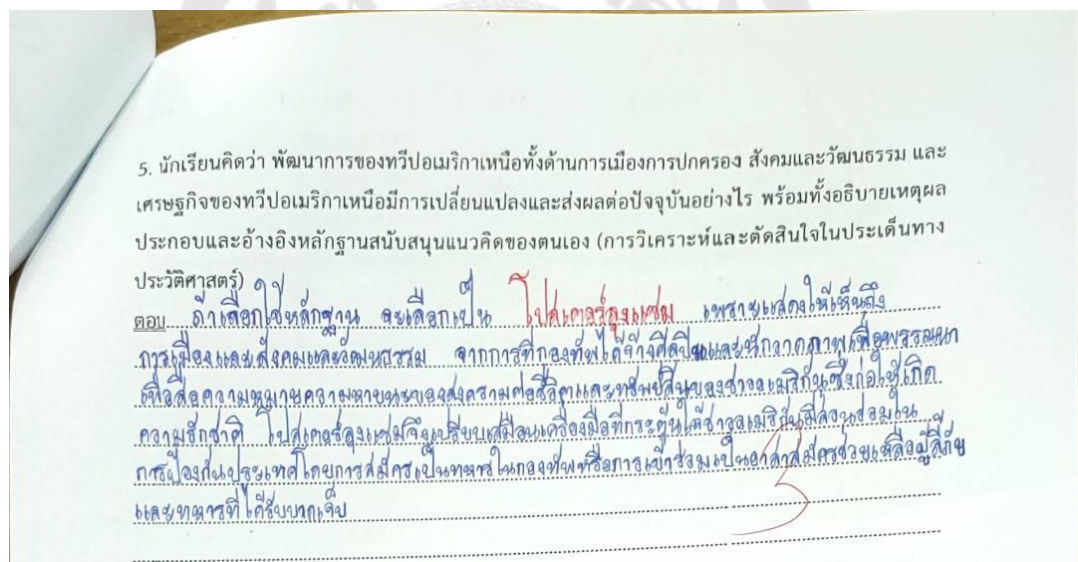 5. นักเรียนคิดว่า พัฒนาการของทวีปอเมริกาเหนือทั้งด้านการเมืองการปกครอง สังคมและวัฒนธรรม และ
เศรษฐกิจของทวีปอเมริกาเหนือมีการเปลี่ยนแปลงและส่งผลต่อปัจจุบันอย่างไร พร้อมทั้งอธิบายเหตุผล
ประกอบและอ้างอิงหลักฐานสนับสนุนแนวคิดของตนเอง (การวิเคราะห์และตัดสินใจในประเด็นทาง
ประวัติศาสตร์)
ตอบ ถ้าเลือกใช้หลักฐาน จะเลือกเป็น โปสเตอร์ลุงแซม เพราะแสดงให้เห็นถึง
การเมืองและสังคมและวัฒนธรรม จากการที่กองทัพได้จ้างศิลปินและนักวาดภาพเพื่อพรรณนา
เพื่อสื่อความหมายความหายนะของสงครามต่อชีวิตและทรัพย์สินของชาวอเมริกันซึ่งก่อให้เกิด
ความรักชาติ โปสเตอร์ลุงแซมจึงเปรียบเสมือนเครื่องมือที่กระตุ้นให้ชาวอเมริกันมีส่วนร่วมใน
การป้องกันประเทศโดยการสมัครเป็นทหารในกองทัพหรือการเข้าร่วมเป็นอาสาสมัครช่วยเหลือผู้ลี้ภัย
และทหารที่ได้รับบาดเจ็บ
3